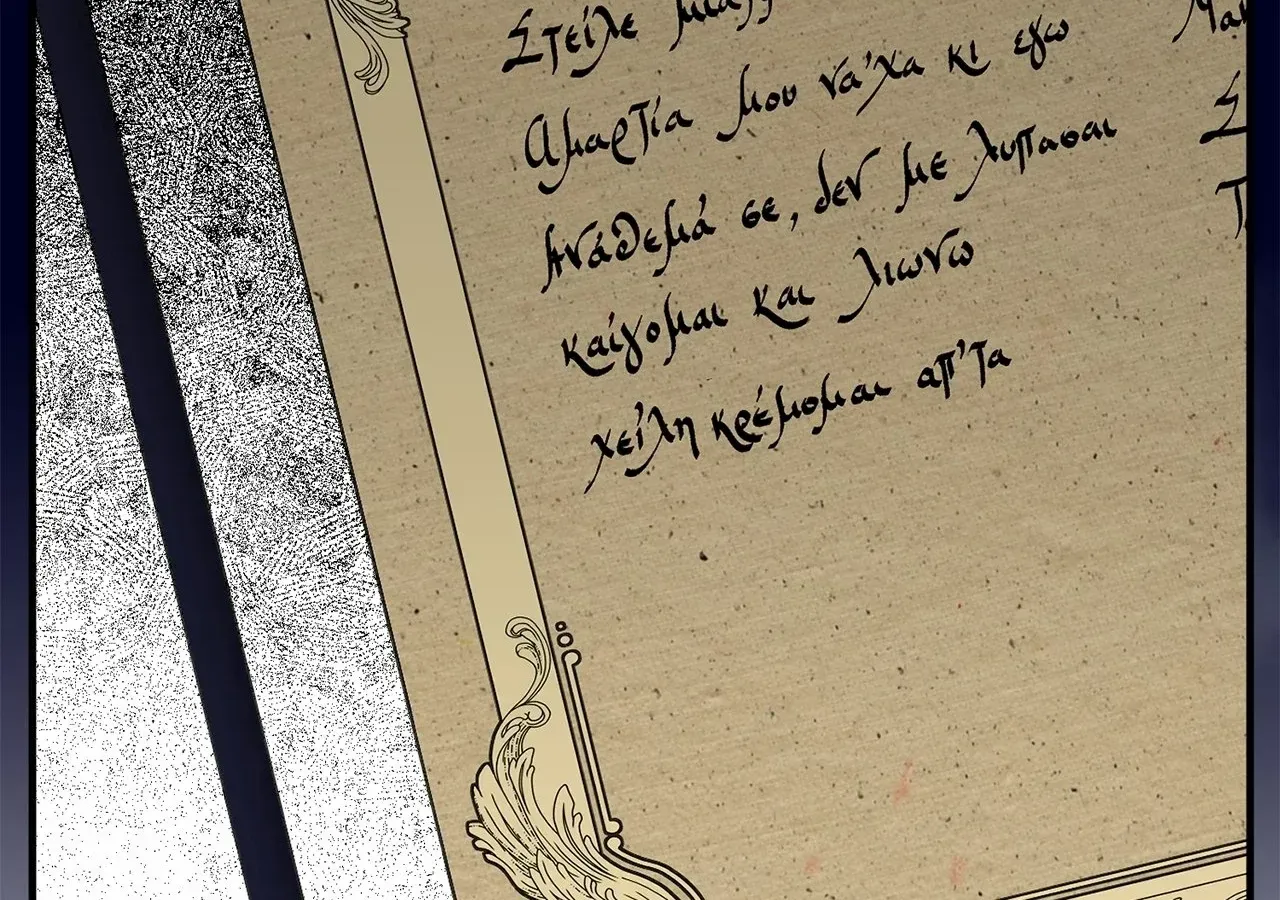 Στείλε
Αμαρτία μου νά'χα κι εγω
Ανάθεμά σε, δεν με λυπασαι
καίγομαι και λιωνω
χείλη κρέμομαι απ'τα